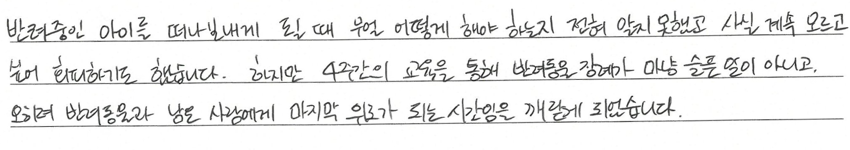 반려중인 아이를 떠나보내게 될 때 무얼 어떻게 해야 하는지 전혀 알지 못했고 사실 계속 모르고
싶어 회피하기도 했습니다. 하지만 4주간의 교육을 통해 반려동물 장례가 마냥 슬픈 일이 아니고,
오히려 반려동물과 남은 사람에게 마지막 위로가 되는 시간임을 깨닫게 되었습니다.